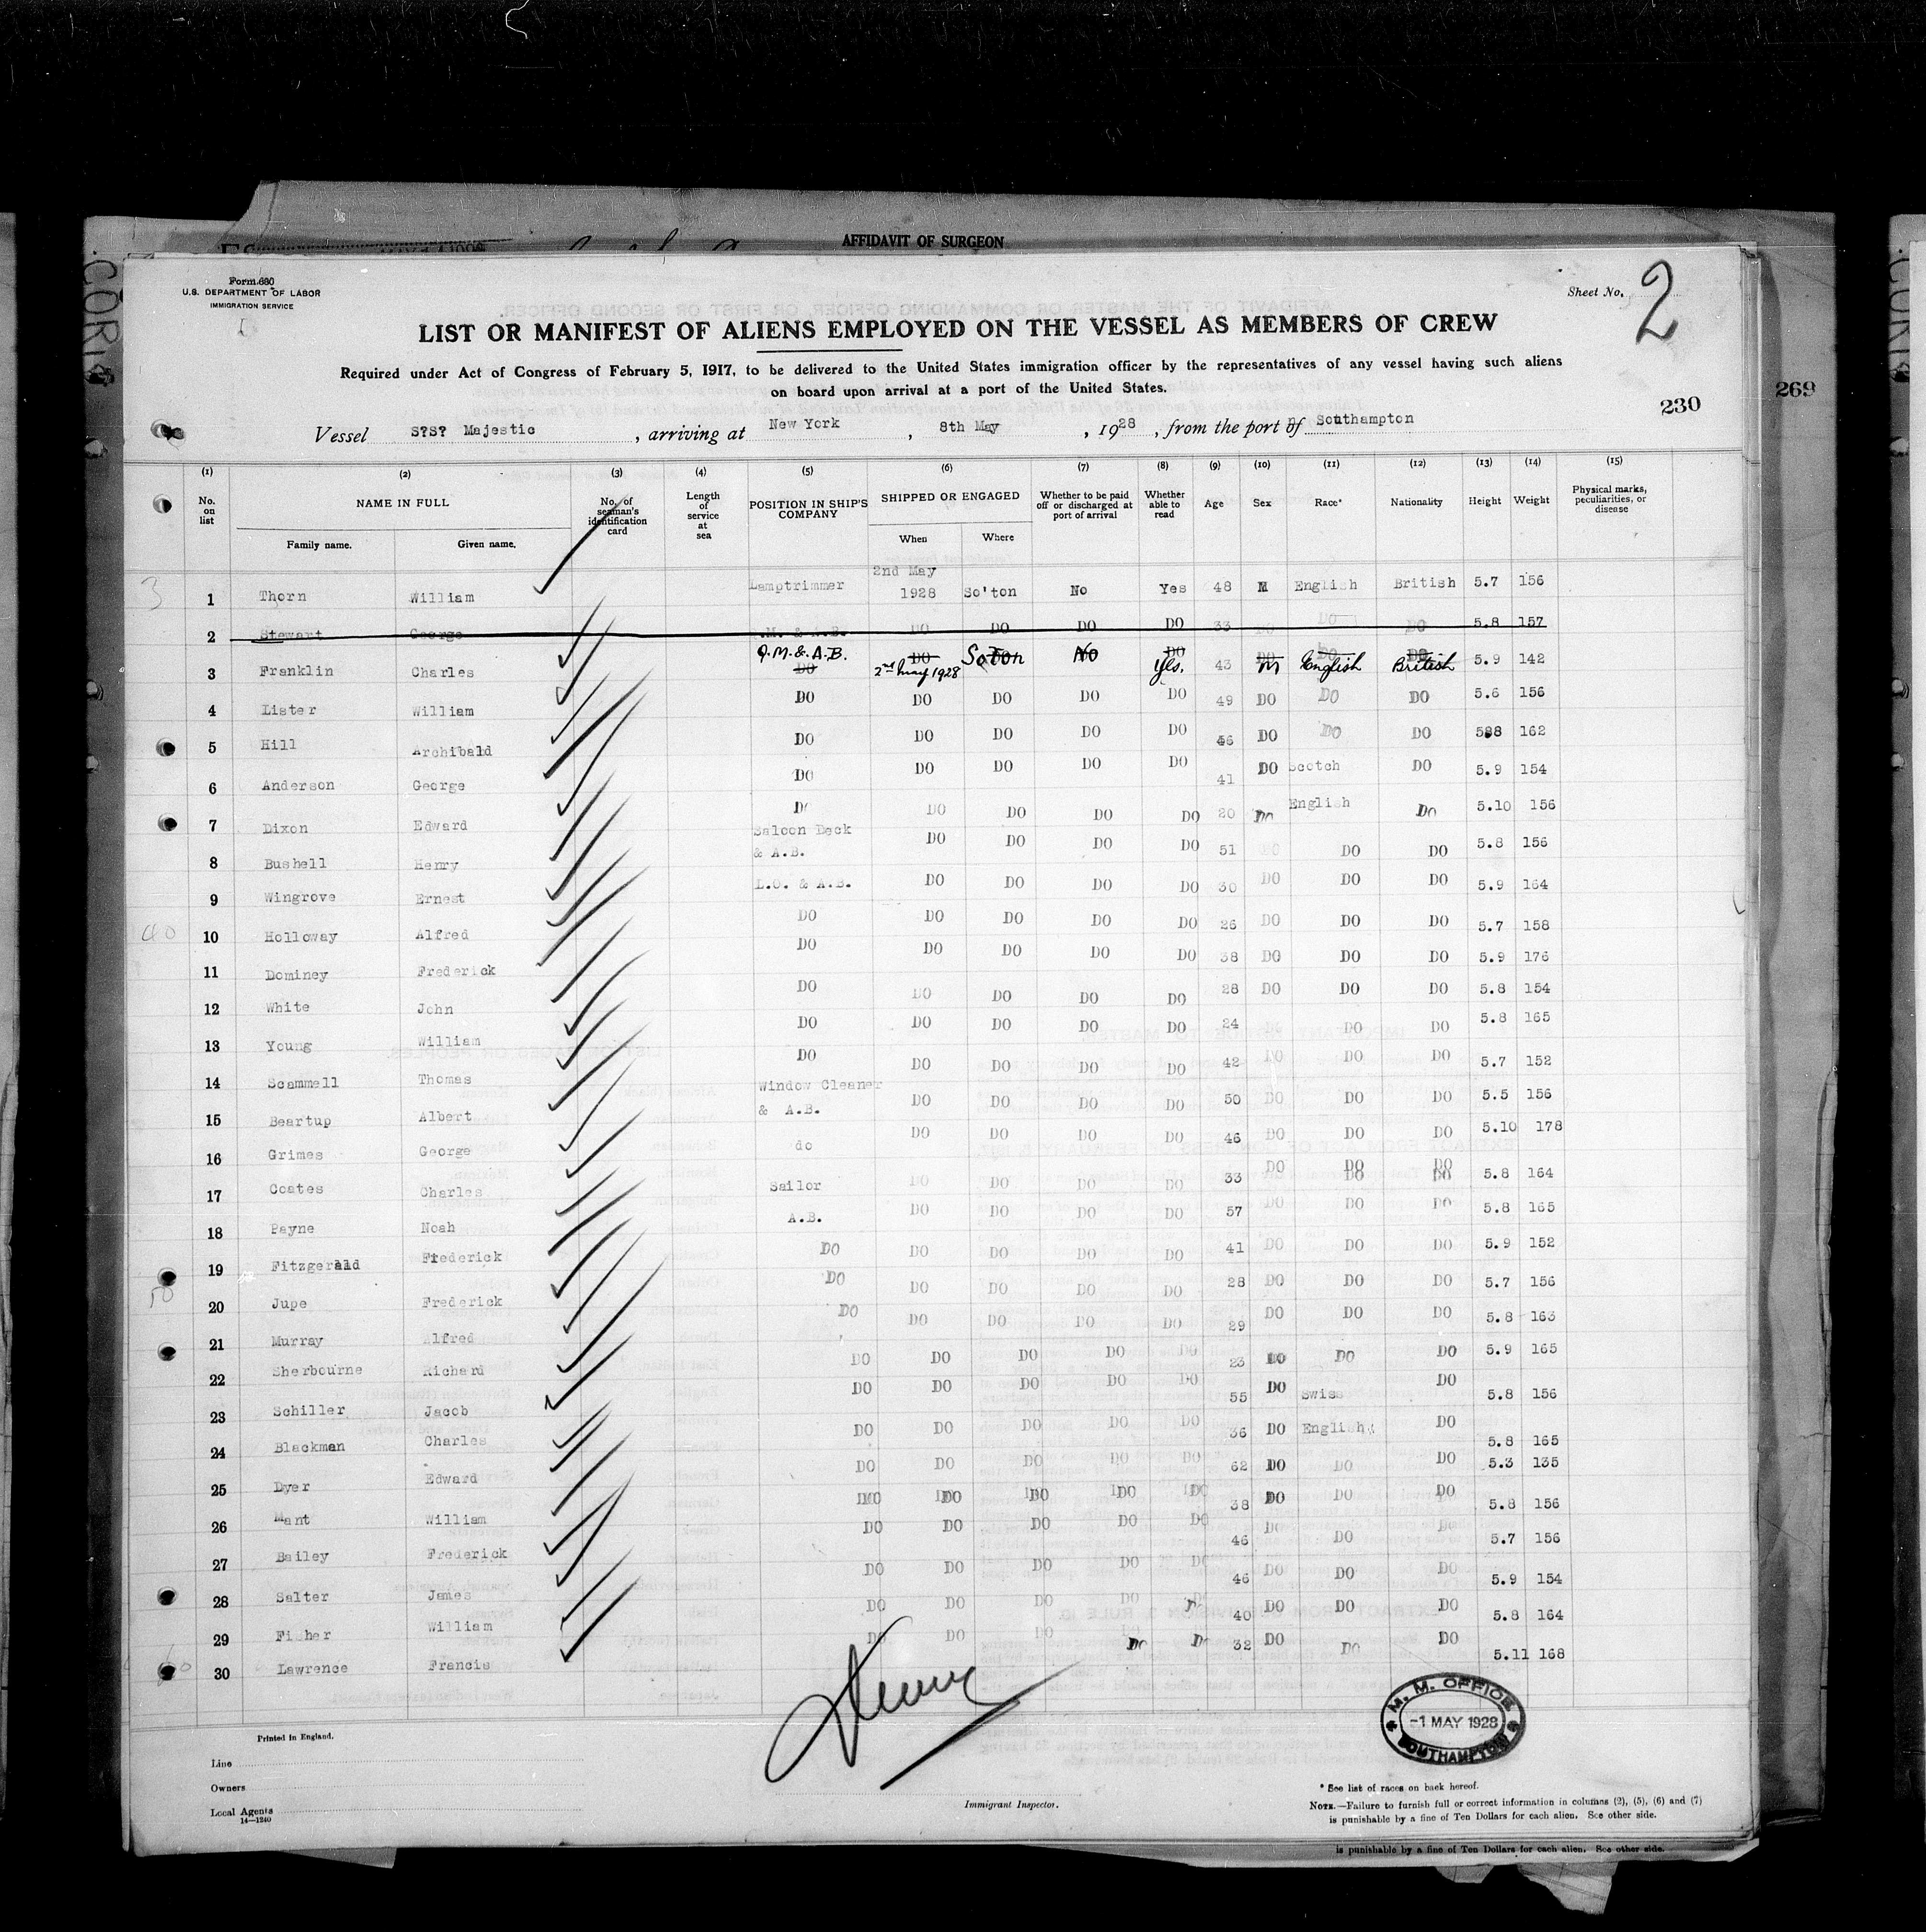 AFFIDAVIT OF SURGEON
Form 680
U.S. DEPARTMENT OF LABOR
IMMIGRATION SERVICE
Sheet No. 2
LIST OR MANIFEST OF ALIENS EMPLOYED ON THE VESSEL AS MEMBERS OF CREW
Required under Act of Congress of February 5, 1917, to be delivered to the United States immigration officer by the representatives of any vessel having such aliens
on board upon arrival at a port of the United States.
230
269
Vessel S?S? Majestic, arriving at New York, 8th May, 1928, from the port of Southampton
(1) (2) (3) (4) (5) (6) (7) (8) (9) (10) (11) (12) (13) (14) (15)
No. on list NAME IN FULL Family name. Given name. No. of seaman's identification card Length of service at sea POSITION IN SHIP'S COMPANY SHIPPED OR ENGAGED When Where Whether to be paid off or discharged at port of arrival Whether able to read Age Sex Race* Nationality Height Weight Physical marks, peculiarities, or disease
3 1 Thorn William Lamptrimmer 2nd May 1928 So'ton No Yes 48 M English British 5.7 156
2 Stewart George Q.M. & A.B. DO DO DO DO 33 DO DO DO 5.8 157
3 Franklin Charles Q.M. & A.B. DO DO 2nd May 1928 So'ton No DO Yes. 43 DO M DO English DO British 5.9 142
4 Lister William DO DO DO DO DO 49 DO DO DO 5.6 156
5 Hill Archibald DO DO DO DO DO 46 DO DO DO 588 162
6 Anderson George DO DO DO DO DO 41 DO Scotch DO 5.9 154
7 Dixon Edward DO DO DO DO DO 20 DO English DO 5.10 156
8 Bushell Henry Saloon Deck & A.B. DO DO DO DO 51 DO DO DO 5.8 156
9 Wingrove Ernest L.O. & A.B. DO DO DO DO 30 DO DO DO 5.9 164
40 10 Holloway Alfred DO DO DO DO DO 26 DO DO DO 5.7 158
11 Dominey Frederick DO DO DO DO DO 38 DO DO DO 5.9 176
12 White John DO DO DO DO DO 28 DO DO DO 5.8 154
13 Young William DO DO DO DO DO 24 DO DO 5.8 165
14 Scammell Thomas DO DO DO DO DO 42 DO DO DO 5.7 152
15 Beartup Albert Window Cleaner & A.B. DO DO DO DO 50 DO DO DO 5.5 156
16 Grimes George do DO DO DO DO 46 DO DO DO 5.10 178
17 Coates Charles Sailor DO DO DO DO 33 DO DO DO DO DO 5.8 164
18 Payne Noah A.B. DO DO DO DO 57 DO DO DO 5.8 165
19 Fitzgerald Frederick DO DO DO DO DO 41 DO DO DO 5.9 152
50 20 Jupe Frederick DO DO DO DO DO 28 DO DO DO 5.7 156
21 Murray Alfred DO DO DO DO DO 29 DO DO DO 5.8 163
22 Sherbourne Richard DO DO DO DO DO 23 DO DO DO 5.9 165
23 Schiller Jacob DO DO DO DO DO 55 DO Swiss DO 5.8 156
24 Blackman Charles DO DO DO DO DO 36 DO English DO 5.8 165
25 Dyer Edward DO DO DO DO DO 62 DO DO DO 5.3 135
26 Mant William DO DO DO DO DO 38 DO DO DO 5.8 156
27 Bailey Frederick DO DO DO DO DO 46 DO DO DO 5.7 156
28 Salter James DO DO DO DO DO 46 DO DO DO 5.9 154
29 Fisher William DO DO DO DO DO 40 DO DO DO 5.8 164
60 30 Lawrence Francis DO DO DO DO DO 32 DO DO DO 5.11 168
M. M. OFFICE
-1 MAY 1928
SOUTHAMPTON
Printed in England.
Line
Owners
Local Agents
14—1240
Immigrant Inspector.
* See list of races on back hereof.
NOTE.—Failure to furnish full or correct information in columns (2), (5), (6) and (7)
is punishable by a fine of Ten Dollars for each alien. See other side.
is punishable by a fine of Ten Dollars for each alien. See other side.